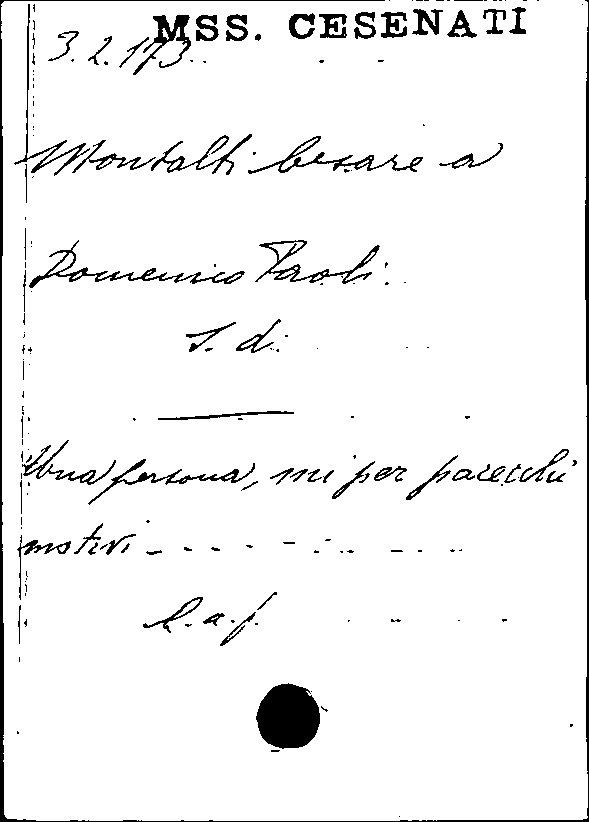 MSS. CESENATI
3.2.173.
Montalti Cesare a
Domenico Paoli.
S. d.
Una persona, mi per parecchi
motivi - - - - - - - - - -
L. a. f.